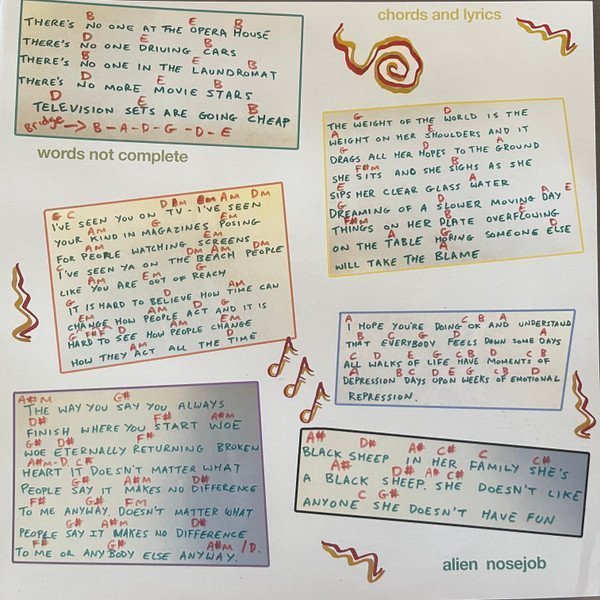 chords and lyrics
B E B
THERE'S NO ONE AT THE OPERA HOUSE
D E B
THERE'S NO ONE DRIVING CARS
B E B
THERE'S NO ONE IN THE LAUNDROMAT
D E B
THERE'S NO MORE MOVIE STARS
D E B
TELEVISION SETS ARE GOING CHEAP
Bridge → B - A - D - G - D - E
words not complete
G D
THE WEIGHT OF THE WORLD IS THE
A E
WEIGHT ON HER SHOULDERS AND IT
G D A
DRAGS ALL HER HOPES TO THE GROUND
F#M B
SHE SITS AND SHE SIGHS AS SHE
E A
SIPS HER CLEAR GLASS WATER
G D A E
DREAMING OF A SLOWER MOVING DAY
F#M B E
THINGS ON HER PLATE OVERFLOWING
A G
ON THE TABLE HOPING SOMEONE ELSE
A
WILL TAKE THE BLAME
G C D Am Am Dm
I'VE SEEN YOU ON TV - I'VE SEEN
Am G Em
YOUR KIND IN MAGAZINES POSING
Am Em
FOR PEOPLE WATCHING SCREENS
C Dm Am Dm
I'VE SEEN YA ON THE BEACH PEOPLE
Am Em G
LIKE YOU ARE OUT OF REACH
G D Am
IT IS HARD TO BELIEVE HOW TIME CAN
Em Am D G
CHANGE HOW PEOPLE ACT AND IT IS
G F#F D Am Em
HARD TO SEE HOW PEOPLE CHANGE
Am D
HOW THEY ACT ALL THE TIME
A C B A
I HOPE YOU'RE DOING OK AND UNDERSTAND
B G D A
THAT EVERYBODY FEELS DOWN SOME DAYS
C D E G C B D C B
ALL WALKS OF LIFE HAVE MOMENTS OF
A B C D E G C B D
DEPRESSION DAYS UPON WEEKS OF EMOTIONAL
REPRESSION.
A#M G#
THE WAY YOU SAY YOU ALWAYS
D# F# A#M
FINISH WHERE YOU START WOE
G# D# F#
WOE ETERNALLY RETURNING BROKEN
A#M-D C#
HEART IT DOESN'T MATTER WHAT
G# A#M D#
PEOPLE SAY IT MAKES NO DIFFERENCE
F# G# FM
TO ME ANYWAY. DOESN'T MATTER WHAT
G# A#M D#
PEOPLE SAY IT MAKES NO DIFFERENCE
F# G# A#M / D.
TO ME OR ANYBODY ELSE ANYWAY.
A# D# A# C# C C#
BLACK SHEEP IN HER FAMILY SHE'S
A# D# A# C#
A BLACK SHEEP. SHE DOESN'T LIKE
C G#
ANYONE SHE DOESN'T HAVE FUN
alien nosejob